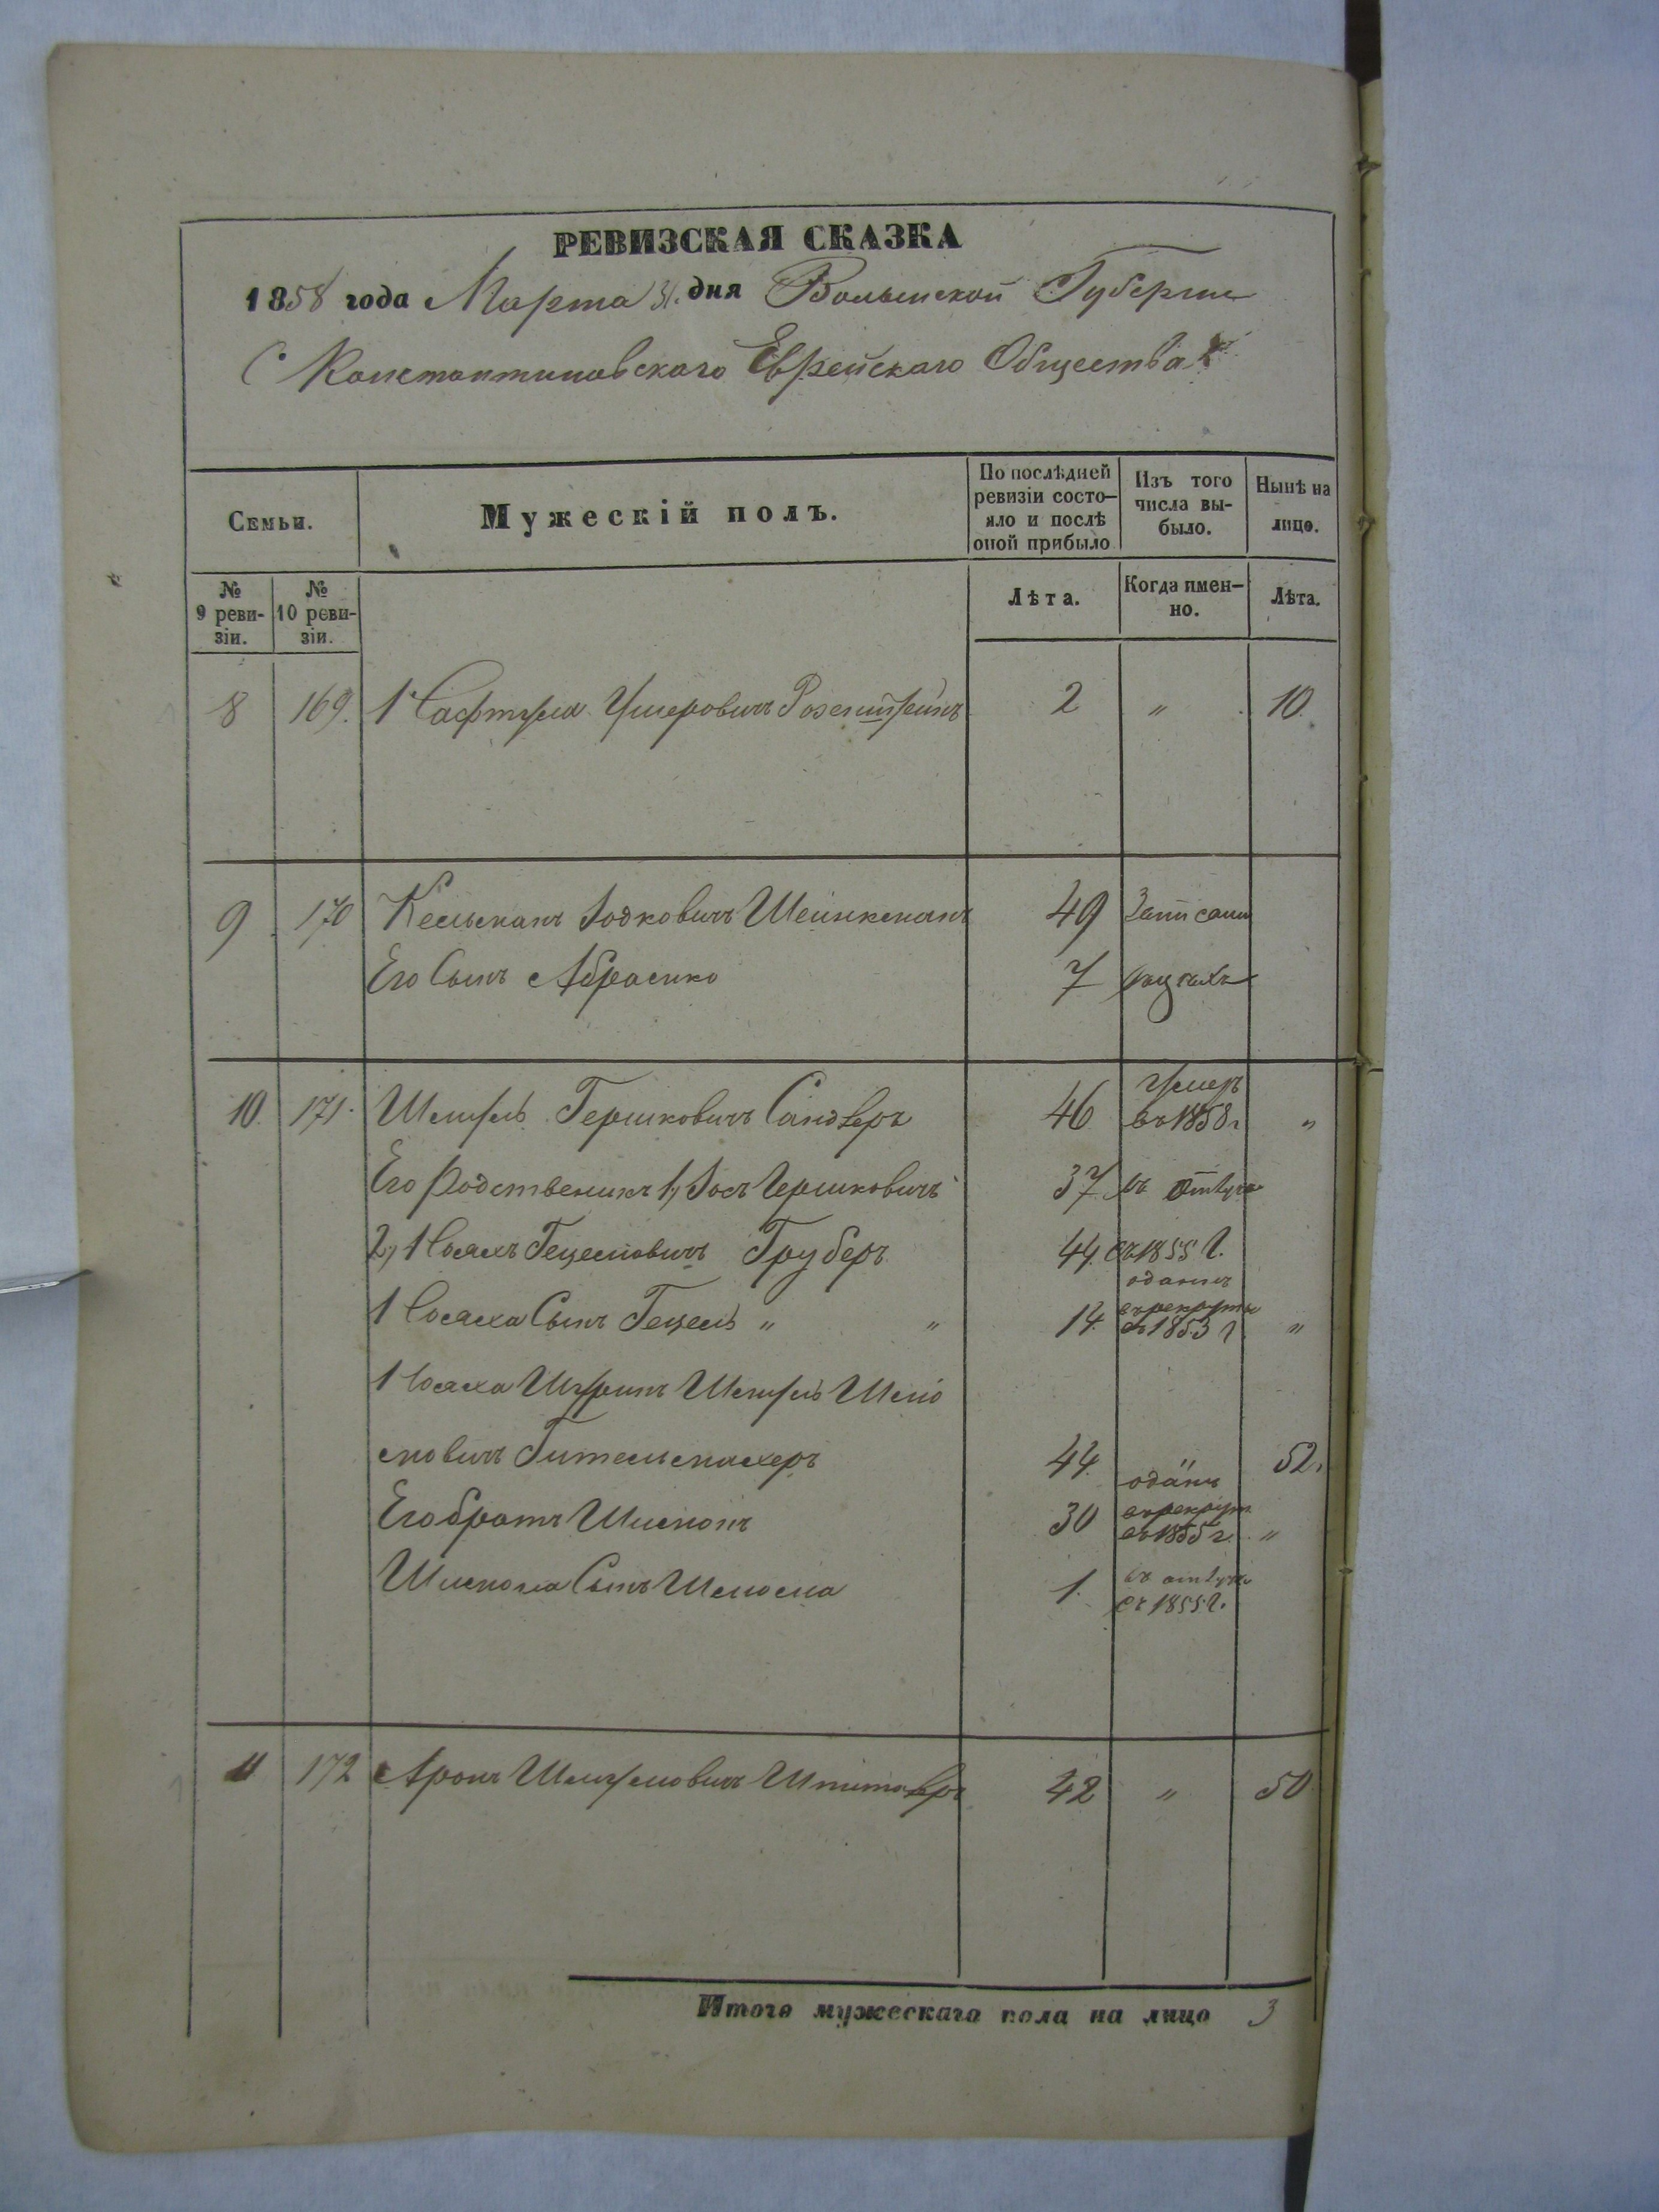 РЕВИЗСКАЯ СКАЗКА
1858 года Марта 31. дня Волынской Губернии
С Константиновского Еврейскаго Общества
Семьи.
Мужескій полъ.
По послѣдней ревизіи состо-
яло и послѣ
оной прибыло
Изъ того
числа вы-
было.
Нынѣ на
лицо.
№
9 реви-
зіи.
№
10 реви-
зіи.
Лѣта.
Когда имен-
но.
Лѣта.
8 169. Умеровичъ Розенштейнъ 2 " 10.
9 170 Кельманъ Іодковичъ Шейнкманъ 49
Его Сынъ Абрамко 7
10. 171. Шмуль Гершковичъ Сандлеръ 46 умеръ въ 1858 г "
Его Родственикъ 1, Іосъ Гершковичъ 37 въ
2, Гецелiовичъ Груберъ 44. съ 1855 г.
Сынъ Гецель " " 14. оданъ въ рекруты въ 1853 г "
Шуринъ Шмуль Шлiо
мовичъ Гительмахеръ 44. " 52.
Его братъ Шимонъ 30 оданъ въ рекрут въ 1855 г. "
Шимона Сынъ Шлiома 1. съ 1855 г.
11 172 Аронъ Шмулiовичъ 42 " 50
Итого мужескаго пола на лицо 3